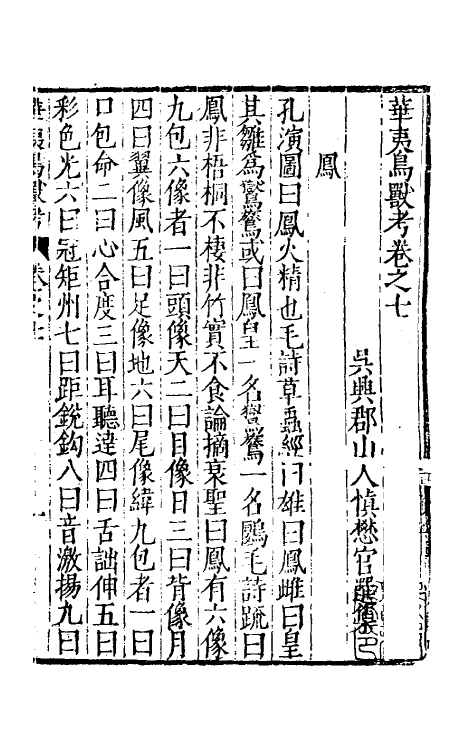 華夷鳥獸考卷之七
吳興郡山人慎懋官
鳳
孔演圖曰鳳火精也毛詩草蟲經曰雄曰鳳雌曰皇
其雛為鸑鷟或曰鳳皇一名鸑鷟一名鶠毛詩疏曰
鳳非梧桐不棲非竹實不食論摘衰聖曰鳳有六像
九包六像者一曰頭像天二曰目像日三曰背像月
四曰翼像風五曰足像地六曰尾像緯九包者一曰
口包命二曰心合度三曰耳聽達四曰舌詘伸五曰
彩色光六曰冠矩州七曰距銳鈎八曰音激揚九曰